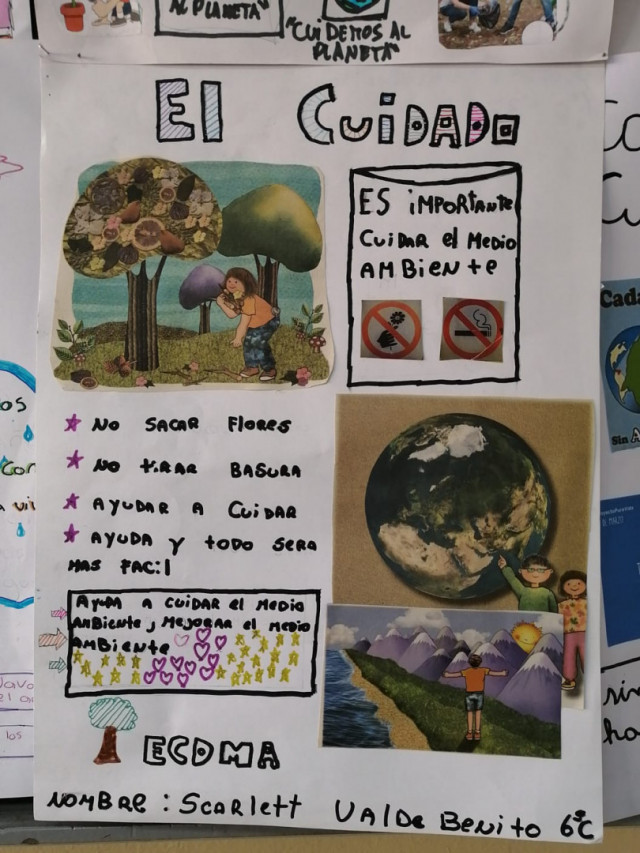 AL PLANETA"
"CUIDEMOS AL
PLANETA"
El CUIDADO
ES iMPORtANte
CUiDAR el MeDio
AMBieNte
NO SACAR FloReS
NO tiRAR BASURA
AYUDAR A CUiDAR
AYUDA Y toDo SeRA
MAS FACil
AYUDA A CUiDAR el MeDio
AMBieNte, MeJoRAR el MeDio
AMBieNte
ECDMA
NOMBRe : ScaRlett VAlDeBeNito 6°C
Cada
Sin A
os
Cor
a vi
los